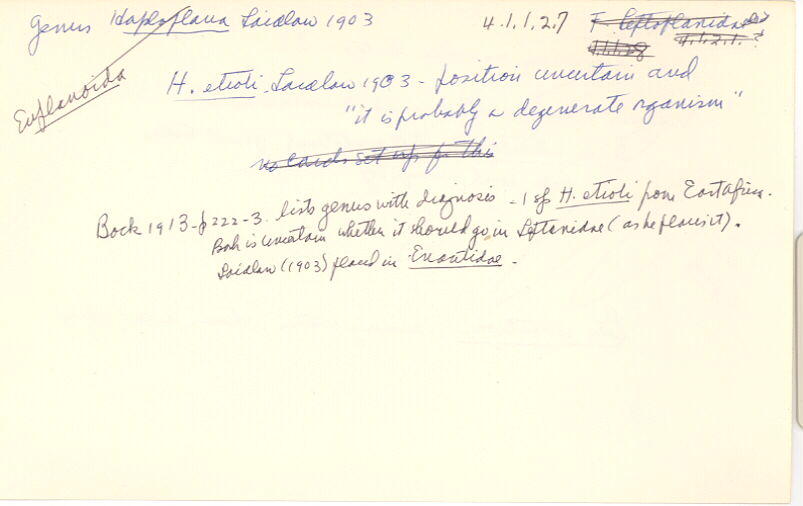 Genus Haploplana Laidlaw 1903 4.1.1.2.7 F. Leptoplanidae
4.1.1.28 4.1.2.1. ?
Euplanoida
H. elioti Laidlaw 1903 - position uncertain and
"it is probably a degenerate organism"
no cards set up for this
Bock 1913 - p 222-3. lists genus with diagnosis - 1 sp H. elioti from East Africa.
Bock is uncertain whether it should go in Leptoplanidae (as he places it).
Laidlaw (1903) placed in Enantidae.